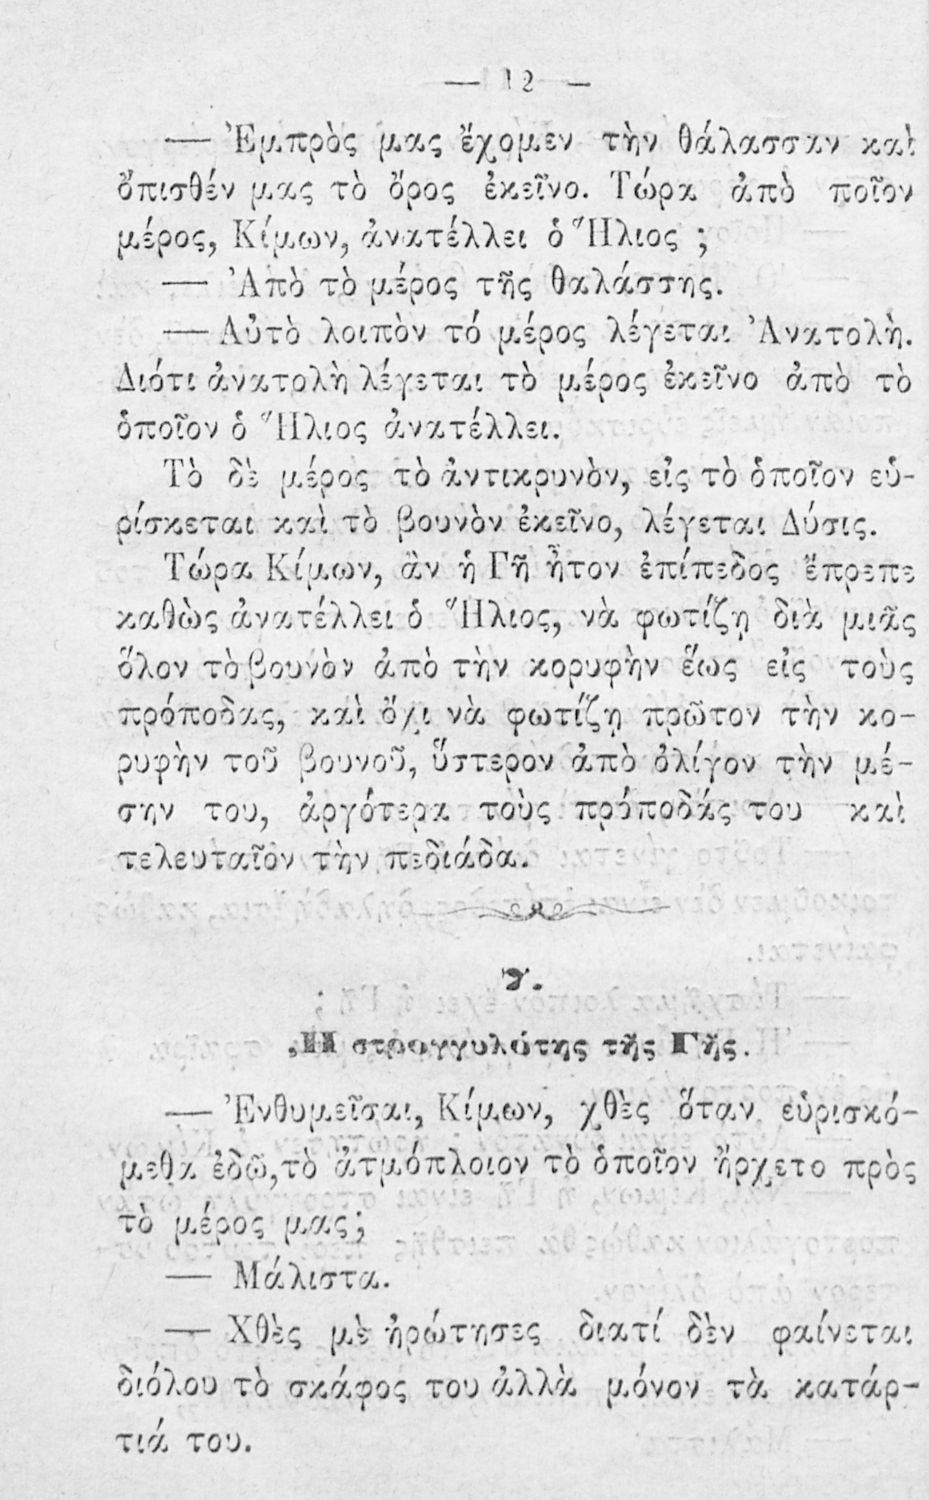 — 12 —
— Ἐμπρὸς μας ἔχομεν τὴν θάλασσαν καὶ
ὄπισθέν μας τὸ ὄρος ἐκεῖνο. Τώρα ἀπὸ ποῖον
μέρος, Κίμων, ἀνατέλλει ὁ Ἥλιος ;
— Ἀπὸ τὸ μέρος τῆς θαλάσσης.
— Αὐτὸ λοιπὸν τό μέρος λέγεται Ἀνατολὴ.
Διότι ἀνατολὴ λέγεται τὸ μέρος ἐκεῖνο ἀπὸ τὸ
ὁποῖον ὁ Ἥλιος ἀνατέλλει.
Τὸ δὲ μέρος τὸ ἀντικρυνὸν, εἰς τὸ ὁποῖον εὑ-
ρίσκεται καὶ τὸ βουνὸν ἐκεῖνο, λέγεται Δύσις.
Τώρα Κίμων, ἂν ἡ Γῆ ἦτον ἐπίπεδος ἔπρεπε
καθὼς ἀνατέλλει ὁ Ἥλιος, νὰ φωτίζῃ διὰ μιᾶς
ὅλον τὸ βουνὸν ἀπὸ τὴν κορυφὴν ἕως εἰς τοὺς
πρόποδας, καὶ ὄχι νὰ φωτίζῃ πρῶτον τὴν κο-
ρυφὴν τοῦ βουνοῦ, ὕστερον ἀπὸ ὀλίγον τὴν μέ-
σην του, ἀργότερα τοὺς πρόποδάς του καὶ
τελευταῖον τὴν πεδιάδα.
γ.
Ἡ στρογγυλότης τῆς Γῆς.
— Ἐνθυμεῖσαι, Κίμων, χθὲς ὅταν εὑρισκό-
μεθα ἐδῶ, τὸ ἀτμόπλοιον τὸ ὁποῖον ἤρχετο πρὸς
τὸ μέρος μας;
— Μάλιστα.
— Χθὲς μὲ ἠρώτησες διατί δὲν φαίνεται
διόλου τὸ σκάφος του ἀλλὰ μόνον τὰ κατάρ-
τιά του.